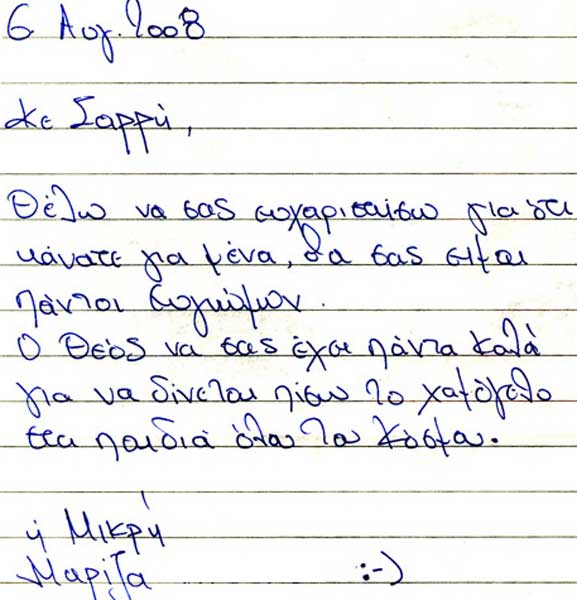 6 Αυγ. 2008
Κε Σαρρή,
Θέλω να σας ευχαριστήσω για ότι
κάνατε για μένα, θα σας είμαι
πάντοι ευγνώμων.
Ο Θεός να σας έχει πάντα καλά
για να δίνεται πίσω το χαμόγελο
στα παιδιά όλου του κόσμου.
ή Μικρή
Μαρίζα :-)